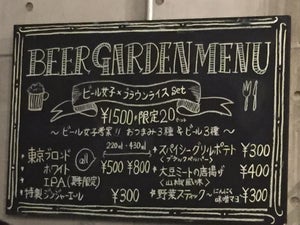 BEER GARDEN MENU
ビール女子×ブラウンライス Set
¥1500 限定20セット
〜ビール女子考案!! おつまみ3種&ビール3種〜
220ml・430ml
・東京ブロンド
ホワイト
IPA(期間限定)
all
¥500 ¥800
・特製ジンジャーエール ¥300
・スパイシーグリルポテト ¥300
〈ブラックペッパー〉
・大豆ミートの唐揚げ ¥400
〈山椒風味〉
・野菜スティック〜にんにく味噌マヨ ¥300